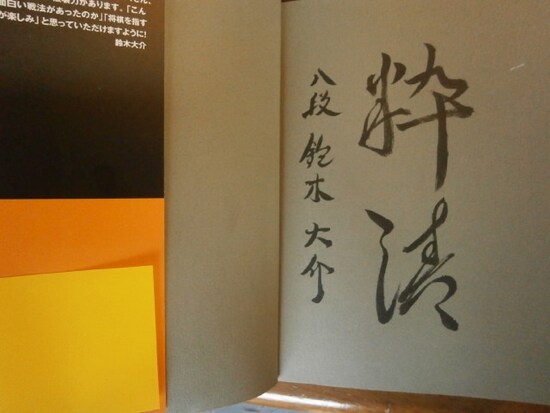 力があります。「こん
面白い戦法があったのか」「将棋を指す
が楽しみ」と思っていただけますように!
鈴木大介
粋清
八段 鈴木大介